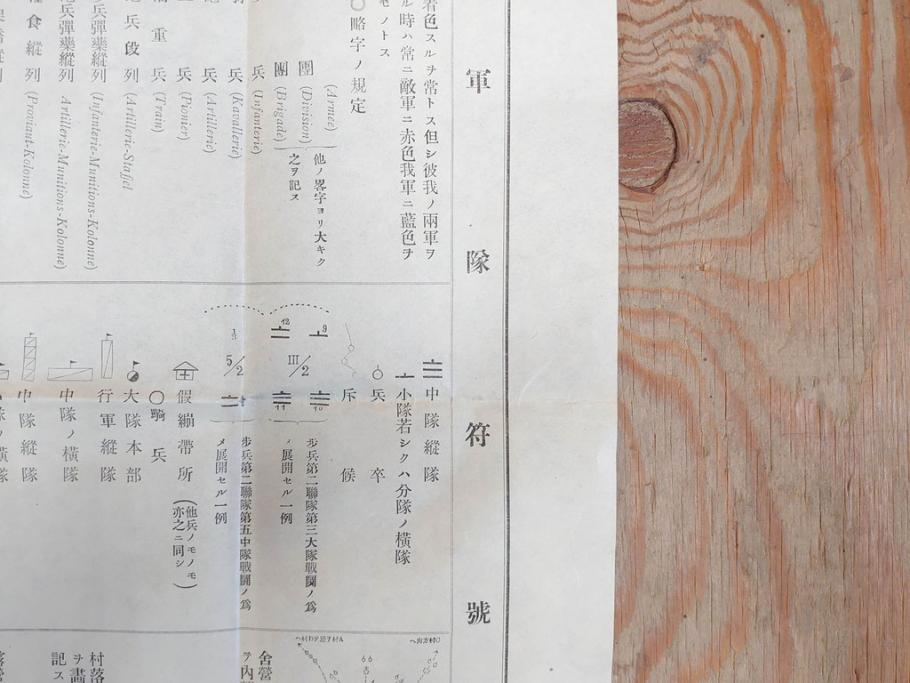 軍隊符號
着色スルヲ常トス但シ彼我ノ兩軍ヲ
ル時ハ常ニ敵軍ニ赤色我軍ニ藍色ヲ
モノトス
〇略字ノ規定
(Armee)
團 (Division)
團 (Brigade)
他ノ畧字ヨリ大キク
之ヲ記ス
兵 (Infanterie)
兵 (Kavallerie)
兵 (Artillerie)
兵 (Pionier)
重兵 (Train)
兵段列 (Artillerie-Staffel)
兵彈藥縱列 (Infanterie-Munitions-Kolonne)
兵彈藥縱列 Artillerie-Munitions-Kolonne)
食縱列 (Proviant-Kolonne)
中隊縱隊
小隊若シクハ分隊ノ橫隊
兵卒
斥候
9
III/2
10
12
11
步兵第二聯隊第三大隊戰鬪ノ爲
メ展開セル一例
5/2
步兵第二聯隊第五中隊戰鬪ノ爲
メ展開セル一例
假繃帶所
(他兵ノモノモ
亦之ニ同シ)
〇騎兵
大隊本部
行軍縱隊
中隊ノ橫隊
中隊縱隊
舍營
ヲ內
村落
ヲ畵
記ス